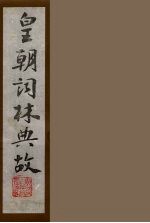 皇朝詞林典故